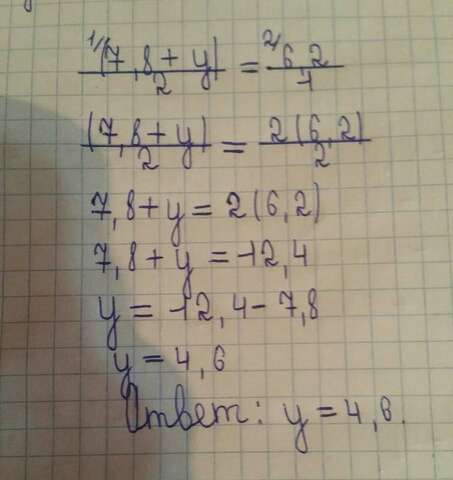 1/(7,8+y)/2 = 2/6,2/1
(7,8+y)/2 = 2(6,2)/2
7,8+y=2(6,2)
7,8+y=12,4
y=12,4-7,8
y=4,6
Ответ: y=4,6.